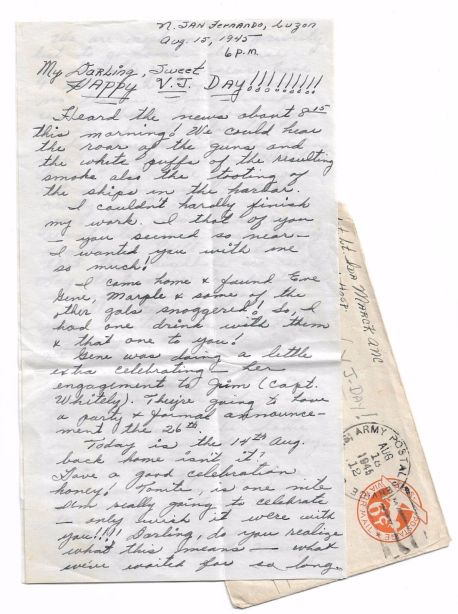 N. San Fernando, Luzon
Aug. 15, 1945
6 P.M.
My Darling, Sweet
HAPPY V.J. DAY!!!!!!!!!
Heard the news about 8:15
this morning! We could hear
the roar of the guns and
the white puffs of the resulting
smoke also the tooting of
the ships in the harbor.
I couldn't hardly finish
my work. I that of you
— you seemed so near —
I wanted you with me
so much!
I came home & found Eve
Gene, Marple & some of the
other gals snoggered! So, I
had one drink with them
& that one to you!
Gene was doing a little
extra celebrating — her
engagement to Jim (Capt.
Whitely). They're going to have
a party & formal announce-
ment the 26th.
Today is the 14th Aug.
back home isn't it?
Have a good celebration
honey! Tonite, is one nite
I'm really going to celebrate
— only wish it were with
you!!!! Darling, do you realize
what this means — what
we've waited for so long.
Lt Ida March ANC
Hosp
V-J-DAY!
ARMY POSTAL
AUG
1945
12
POSTAGE
VIA AIR
6